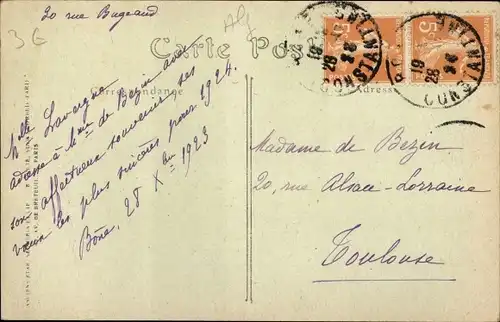 20 rue Bugeaud
3 G
Alg
Carte Pos
Correspondance
Adresse
CONSTANTINE
19
28
CONSTANTINE
19
28
5
5
Mlle Lavergne
adresse à Mme de Bezin avec
son affectueux souvenir ses
vœux les plus sincères pour 1924.
Bône, 28 Xbre 1923
Madame de Bezin
20, rue Alsace-Lorraine
Toulouse